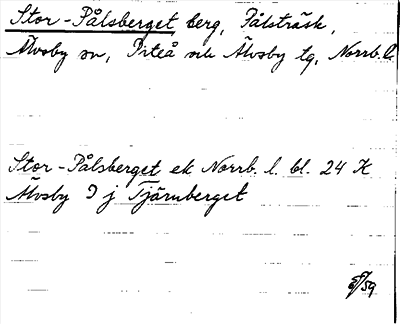 Stor-Pålsberget, berg, Pålsträsk,
Älvsby sn, Piteå och Älvsby tg, Norrb. l.
Stor-Pålsberget ek Norrb. l. bl. 24 K
Älvsby 9 j Tjärnberget
/59